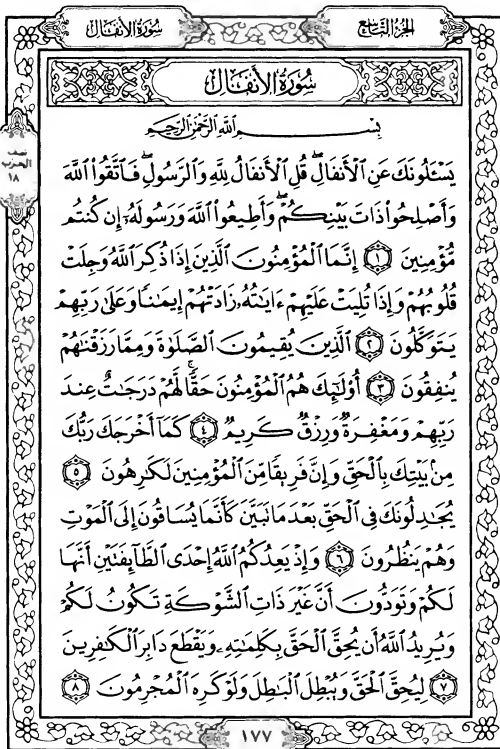 الجزء التاسع
سورة الأنفال
سُورَةُ الأَنفَالِ
بِسْمِ اللَّهِ الرَّحْمَٰنِ الرَّحِيمِ
نصف
الحزب
١٨
يَسْـَٔلُونَكَ عَنِ ٱلْأَنفَالِ ۖ قُلِ ٱلْأَنفَالُ لِلَّهِ وَٱلرَّسُولِ ۖ فَٱتَّقُوا۟ ٱللَّهَ
وَأَصْلِحُوا۟ ذَاتَ بَيْنِكُمْ ۖ وَأَطِيعُوا۟ ٱللَّهَ وَرَسُولَهُۥٓ إِن كُنتُم
مُّؤْمِنِينَ ١ إِنَّمَا ٱلْمُؤْمِنُونَ ٱلَّذِينَ إِذَا ذُكِرَ ٱللَّهُ وَجِلَتْ
قُلُوبُهُمْ وَإِذَا تُلِيَتْ عَلَيْهِمْ ءَايَٰتُهُۥ زَادَتْهُمْ إِيمَٰنًا وَعَلَىٰ رَبِّهِمْ
يَتَوَكَّلُونَ ٢ ٱلَّذِينَ يُقِيمُونَ ٱلصَّلَوٰةَ وَمِمَّا رَزَقْنَٰهُمْ
يُنفِقُونَ ٣ أُو۟لَٰٓئِكَ هُمُ ٱلْمُؤْمِنُونَ حَقًّا ۚ لَّهُمْ دَرَجَٰتٌ عِندَ
رَبِّهِمْ وَمَغْفِرَةٌ وَرِزْقٌ كَرِيمٌ ٤ كَمَآ أَخْرَجَكَ رَبُّكَ
مِنۢ بَيْتِكَ بِٱلْحَقِّ وَإِنَّ فَرِيقًا مِّنَ ٱلْمُؤْمِنِينَ لَكَٰرِهُونَ ٥
يُجَٰدِلُونَكَ فِى ٱلْحَقِّ بَعْدَ مَا تَبَيَّنَ كَأَنَّمَا يُسَاقُونَ إِلَى ٱلْمَوْتِ
وَهُمْ يَنظُرُونَ ٦ وَإِذْ يَعِدُكُمُ ٱللَّهُ إِحْدَى ٱلطَّآئِفَتَيْنِ أَنَّهَا
لَكُمْ وَتَوَدُّونَ أَنَّ غَيْرَ ذَاتِ ٱلشَّوْكَةِ تَكُونُ لَكُمْ
وَيُرِيدُ ٱللَّهُ أَن يُحِقَّ ٱلْحَقَّ بِكَلِمَٰتِهِۦ وَيَقْطَعَ دَابِرَ ٱلْكَٰفِرِينَ
٧ لِيُحِقَّ ٱلْحَقَّ وَيُبْطِلَ ٱلْبَٰطِلَ وَلَوْ كَرِهَ ٱلْمُجْرِمُونَ ٨
١٧٧